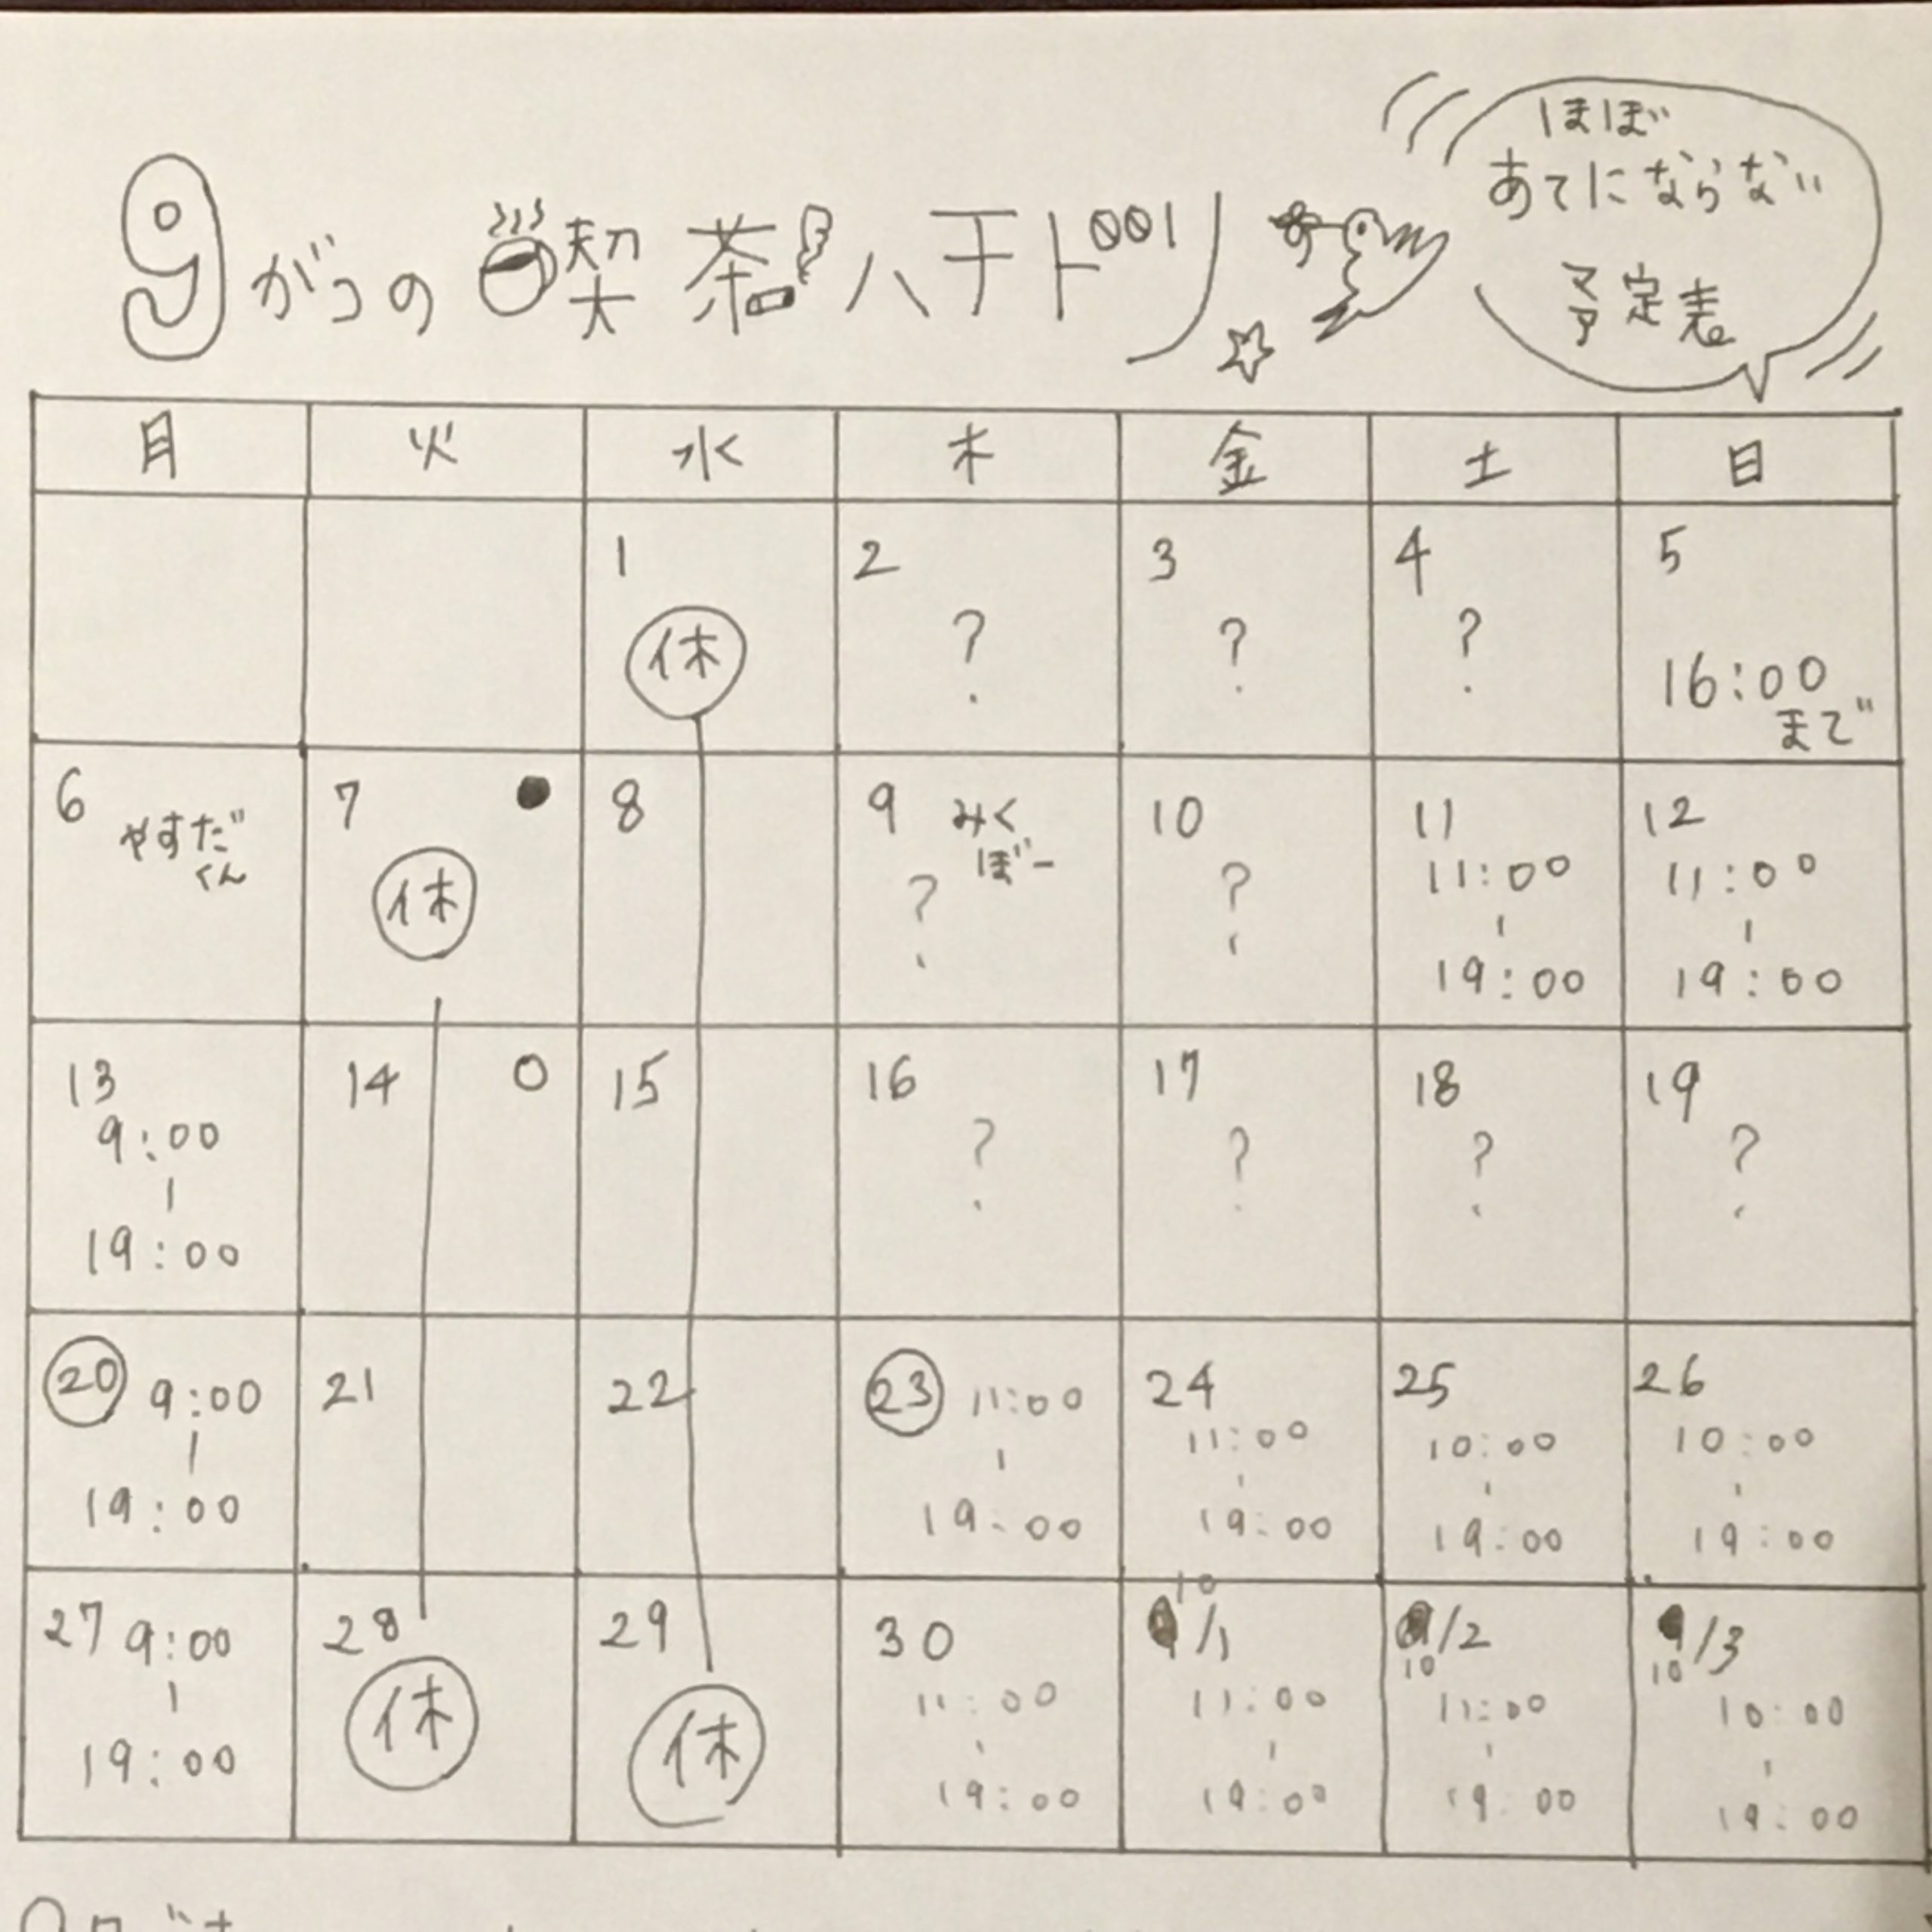 9がつの喫茶ハチドリ
ほぼ
あてにならない
予定表
月 火 水 木 金 土 日
1 2 3 4 5
休 ? ? ? 16:00
まで
6 7 8 9 10 11 12
やすだ
くん
休
みく
ぼー
? ?
11:00 11:00
19:00 19:00
13 14 15 16 17 18 19
9:00
19:00
? ? ? ?
20 21 22 23 24 25 26
9:00 11:00 11:00 10:00 10:00
19:00 19:00 19:00 19:00 19:00
27 28 29 30 10/1 10/2 10/3
9:00 休 休 11:00 11:00 11:00 10:00
19:00 19:00 19:00 19:00 19:00